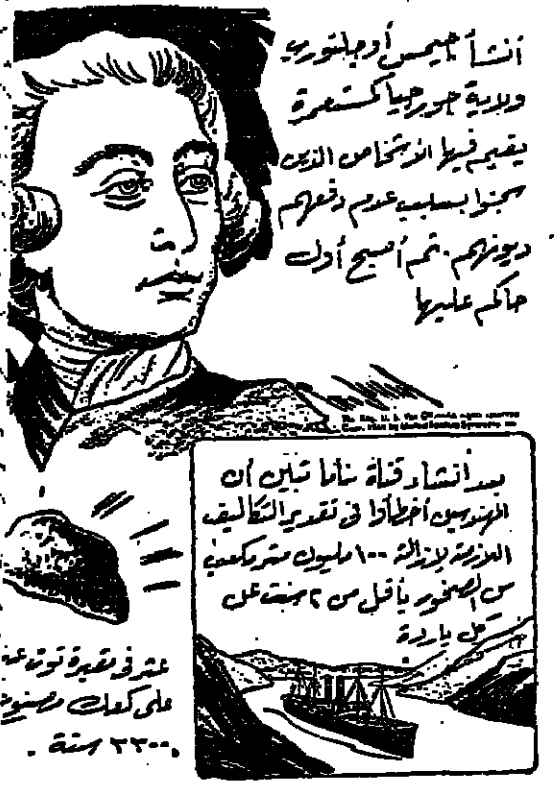 أنشأ جيمس أوجلثوربي
ولاية جورجيا كمستعمرة
يقيم فيها الأشخاص الذين
سجنوا بسبب عدم دفعهم
ديونهم. ثم أصبح أول
حاكم عليها
بعد انشاء قناة بناما تبين أن
المهندسين أخطأوا في تقدير التكاليف
اللازمة لإزالة ١٠٠ مليون متر مكعب
من الصخور بأقل من ٢ سنت عن
كل ياردة
عثر في مقبرة توت عنخ
على كعك مصنوع
٣٣٠٠ سنة.